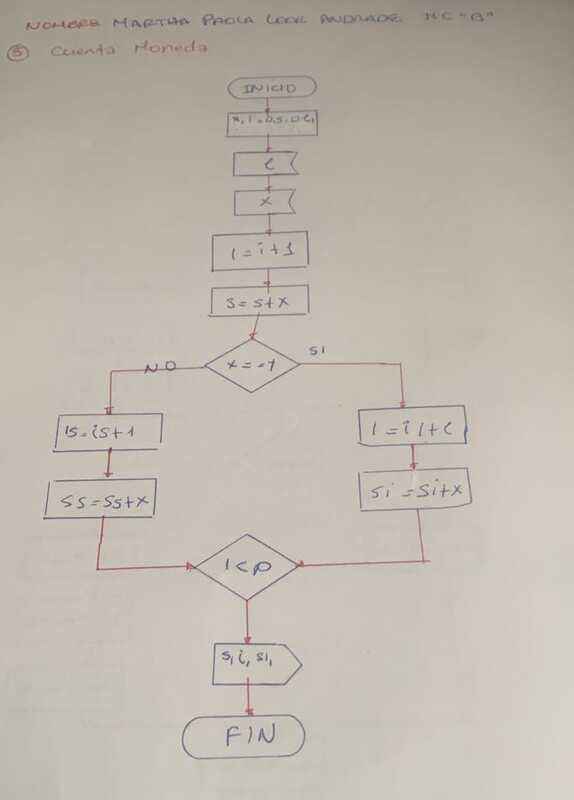 NOMBRE MARTHA PAOLA LOOR ANDRADE MC "B"
⑤ Cuenta Moneda
INICIO
e
x
I = i + 1
S = S + X
NO
SI
iS = iS + 1
SS = SS + X
Si = Si + X
I < P
S, i, Si,
FIN